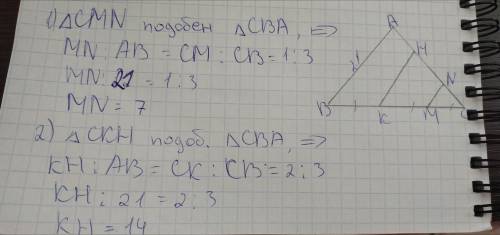 1) △CMN подобен △CBA, ⇒
MN : AB = CM : CB = 1 : 3
MN : 21 = 1 : 3
MN = 7
2) △CKH подоб. △CBA, ⇒
KH : AB = CK : CB = 2 : 3
KH : 21 = 2 : 3
KH = 14
A
H
N
B
K
M
C